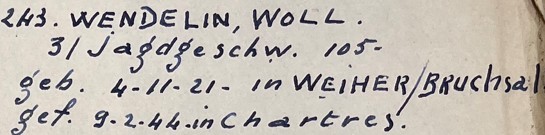 243. WENDELIN, WOLL.
3/Jagdgeschw. 105-
geb. 4-11-21- in WEIHER/BRUCHSAL
gef. 9-2-44-in Chartres.